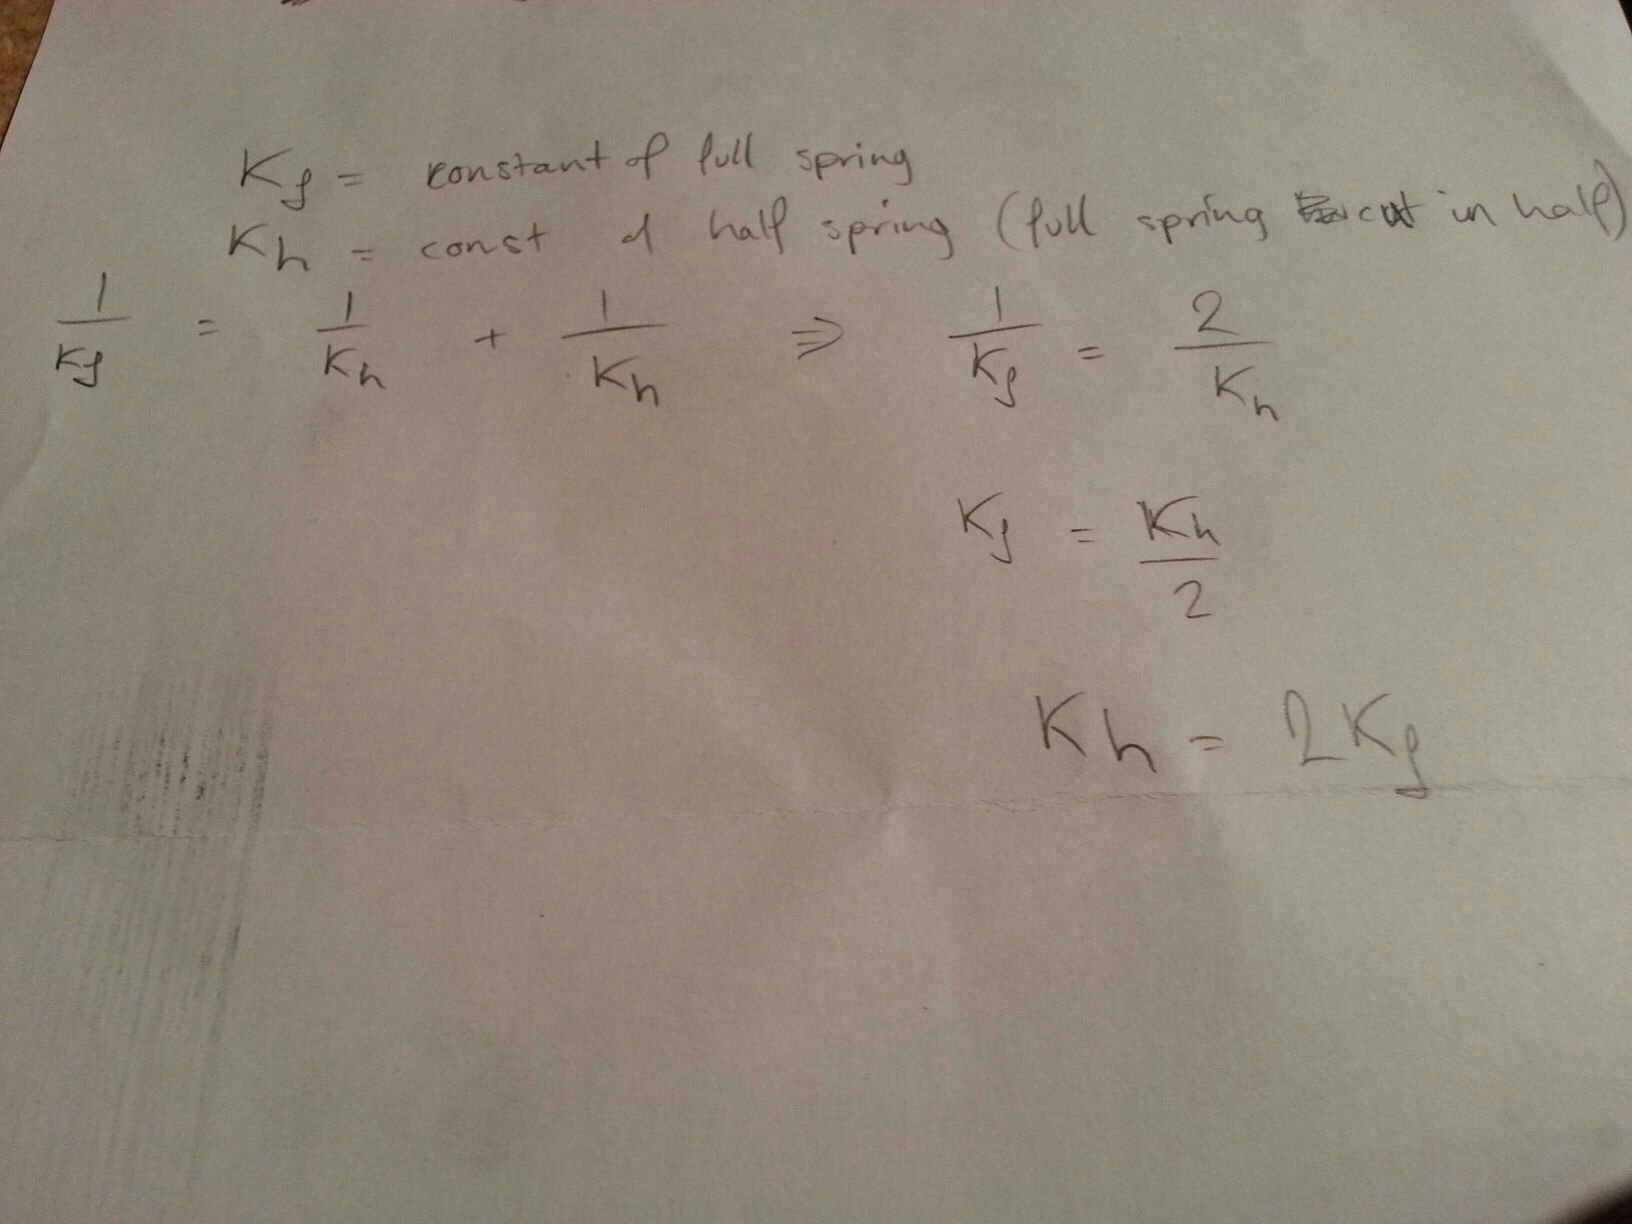 Kf = constant of full spring
Kh = const of half spring (full spring cut in half)
1/Kf = 1/Kh + 1/Kh ⇒ 1/Kf = 2/Kh
Kf = Kh/2
Kh = 2Kf